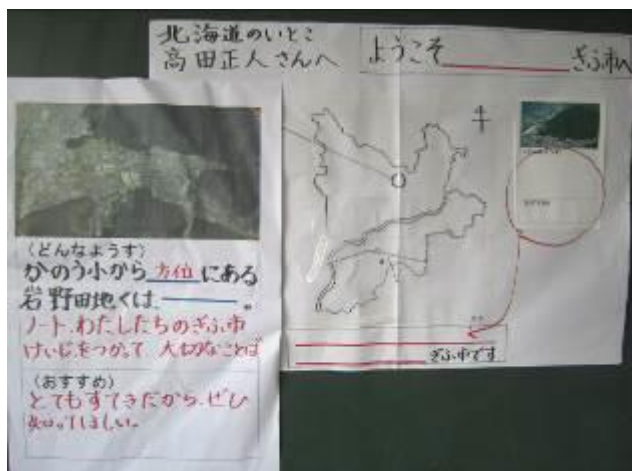 北海道のいとこ
高田正人さんへ
ようこそ ぎふ市へ
(どんなようす)
かのう小から方位にある
岩野田地くは、 。
ノート、わたしたちのぎふ市
けいじをつかって 大切なことば
(おすすめ)
とてもすてきだから、ぜひ
知ってほしい。
ぎふ市です